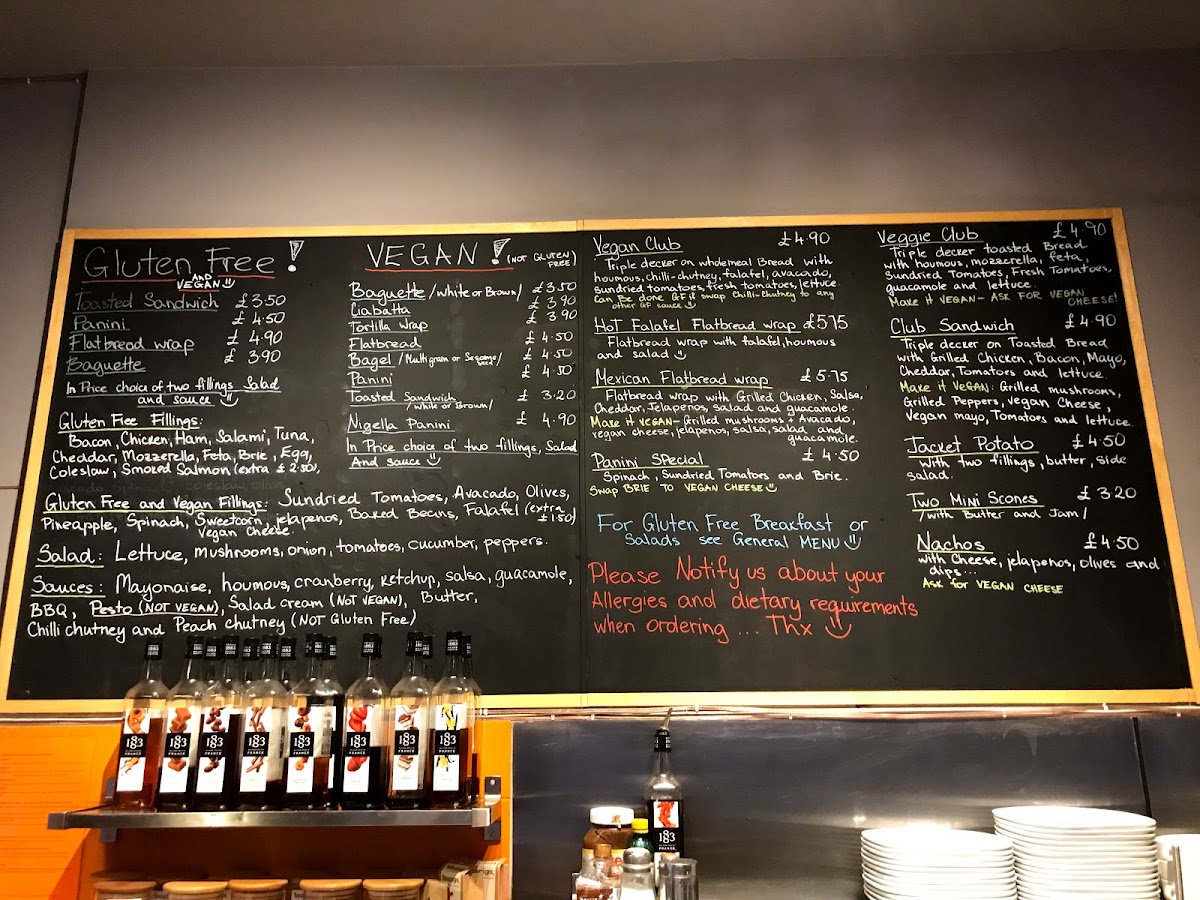 Gluten Free !
AND
VEGAN
Toasted Sandwich £3.50
Panini £ 4.50
Flatbread wrap £ 4.90
Baguette £ 3.90
In Price choice of two fillings, Salad
and sauce
Gluten Free Fillings:
Bacon, Chicken, Ham, Salami, Tuna,
Cheddar, Mozzerella, Feta, Brie, Egg,
Coleslaw, Smoked Salmon (extra £2.50),
Gluten Free and Vegan Fillings: Sundried Tomatoes, Avacado, Olives,
Pineapple, Spinach, Sweetcorn, jelapenos, Baked Beans, Falafel (extra £1.50)
Vegan cheese.
Salad: Lettuce, mushrooms, onion, tomatoes, cucumber, peppers.
Sauces: Mayonaise, houmous, cranberry, ketchup, salsa, guacamole,
BBQ, Pesto (NOT VEGAN), Salad cream (NOT VEGAN), Butter,
Chilli chutney and Peach chutney (NOT Gluten Free)
VEGAN ! (NOT GLUTEN FREE)
Baguette /White or Brown/ £3.50
Ciabatta £ 3.90
Tortilla Wrap £ 3.90
Flatbread £ 4.50
Bagel /Multigrain or Sesame seed £ 4.50
Panini £ 4.50
Toasted Sandwich /white or Brown/ £ 3.20
Nigella Panini £ 4.90
In Price choice of two fillings, Salad
And sauce
Vegan Club £4.90
Triple decker on wholemeal Bread with
houmous, chilli-chutney, falafel, avacado,
Sundried tomatoes, fresh tomatoes, lettuce.
Can Be done GF if swap Chilli-Chutney to any
other GF sauce
HOT Falafel Flatbread wrap £5.75
Flatbread wrap with falafel, houmous
and salad
Mexican Flatbread wrap £5.75
Flatbread wrap with Grilled Chicken, Salsa,
Cheddar, Jelapenos, salad and guacamole.
Make it VEGAN - Grilled mushrooms + Avacado,
vegan cheese, jelapenos, salsa, salad and
guacamole.
Panini SPecial £ 4.50
Spinach, Sundried Tomatoes and Brie.
Swap BRIE TO VEGAN CHEESE
For Gluten Free Breakfast or
Salads see General MENU
Please Notify us about your
Allergies and dietary requirements
when ordering .... Thx
Veggie Club £4.90
Triple decker toasted Bread
with houmous, mozzerella, feta,
Sundried Tomatoes, Fresh Tomatoes,
guacamole and lettuce.
Make it VEGAN - ASK FOR VEGAN
CHEESE!
Club Sandwich £4.90
Triple decker on Toasted Bread
with Grilled Chicken, Bacon, Mayo,
Cheddar, Tomatoes and lettuce
Make it VEGAN: Grilled mushrooms,
Grilled Peppers, Vegan Cheese,
Vegan mayo, Tomatoes and lettuce.
Jacket Potato £4.50
With two fillings, butter, side
salad.
Two Mini Scones £ 3.20
/with Butter and Jam/
Nachos £4.50
with Cheese, jelapenos, olives and
dips...
Ask for VEGAN CHEESE
1883
FRANCE
1883
FRANCE
1883
FRANCE
1883
FRANCE
1883
FRANCE
1883
FRANCE
1883
FRANCE
1883
FRANCE
1883
FRANCE